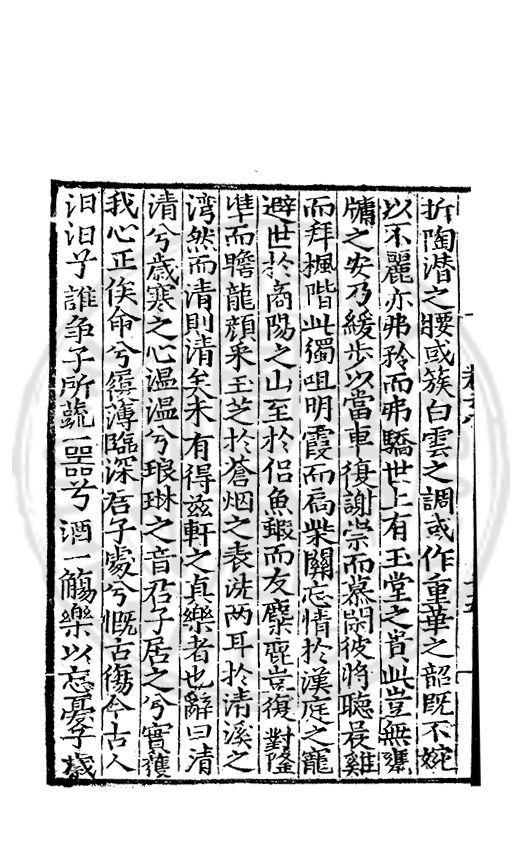 折陶潜之腰或簇白雲之調或作重華之韶既不婉
以不麗亦弗矜而弗驕世上有玉堂之貴此豈無甕
牖之安乃緩步以當車復謝崇而慕閑彼將聴晨雞
而拜楓階此獨咀明霞而扃柴關忘情於漢庭之寵
避世於商陽之山至於侣魚鰕而友麋鹿豈復對隆
凖而瞻龍顔采玉芝於蒼烟之表洗两耳於清溪之
湾然而清則清矣未有得兹軒之真樂者也辭曰清
清兮歳寒之心温温兮琅琳之音君子居之兮實獲
我心正俟命兮履薄臨深君子處兮慨古傷今古人
汨汨兮誰争子所蔬一器兮酒一觴樂以忘憂子歳